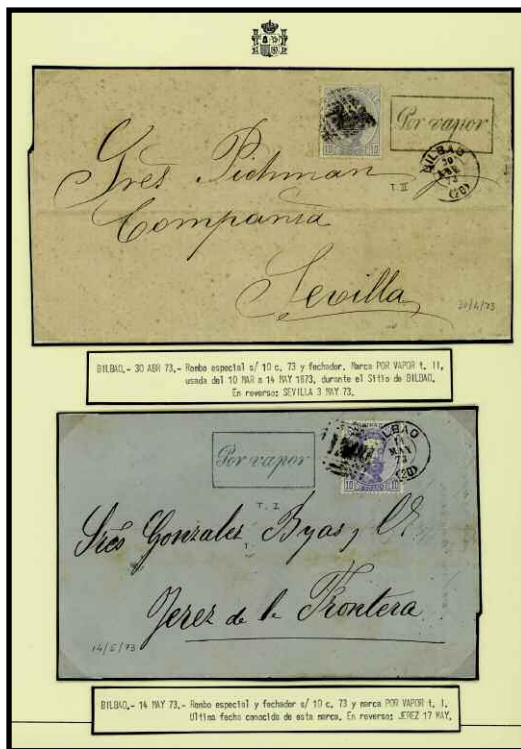 Por vapor
10 10
BILBAO
30
ABR
73
(20)
Sres Pickman y
T. II
Compania
Sevilla
30/4/73
BILBAO.- 30 ABR 73.- Rombo especial s/ 10 c. 73 y fechador. Marca POR VAPOR t. II,
usada del 10 MAR a 14 MAY 1873, durante el Sitio de BILBAO.
En reverso: SEVILLA 3 MAY 73.
Por vapor
10 10
BILBAO
14
MAY
73
(20)
T. I
Sres Gonzalez Byas y Ca
Jerez de la Frontera
14/5/73
BILBAO.- 14 MAY 73.- Rombo especial y fechador s/ 10 c. 73 y marca POR VAPOR t. I.
Ultima fecha conocida de esta marca. En reverso: JEREZ 17 MAY.